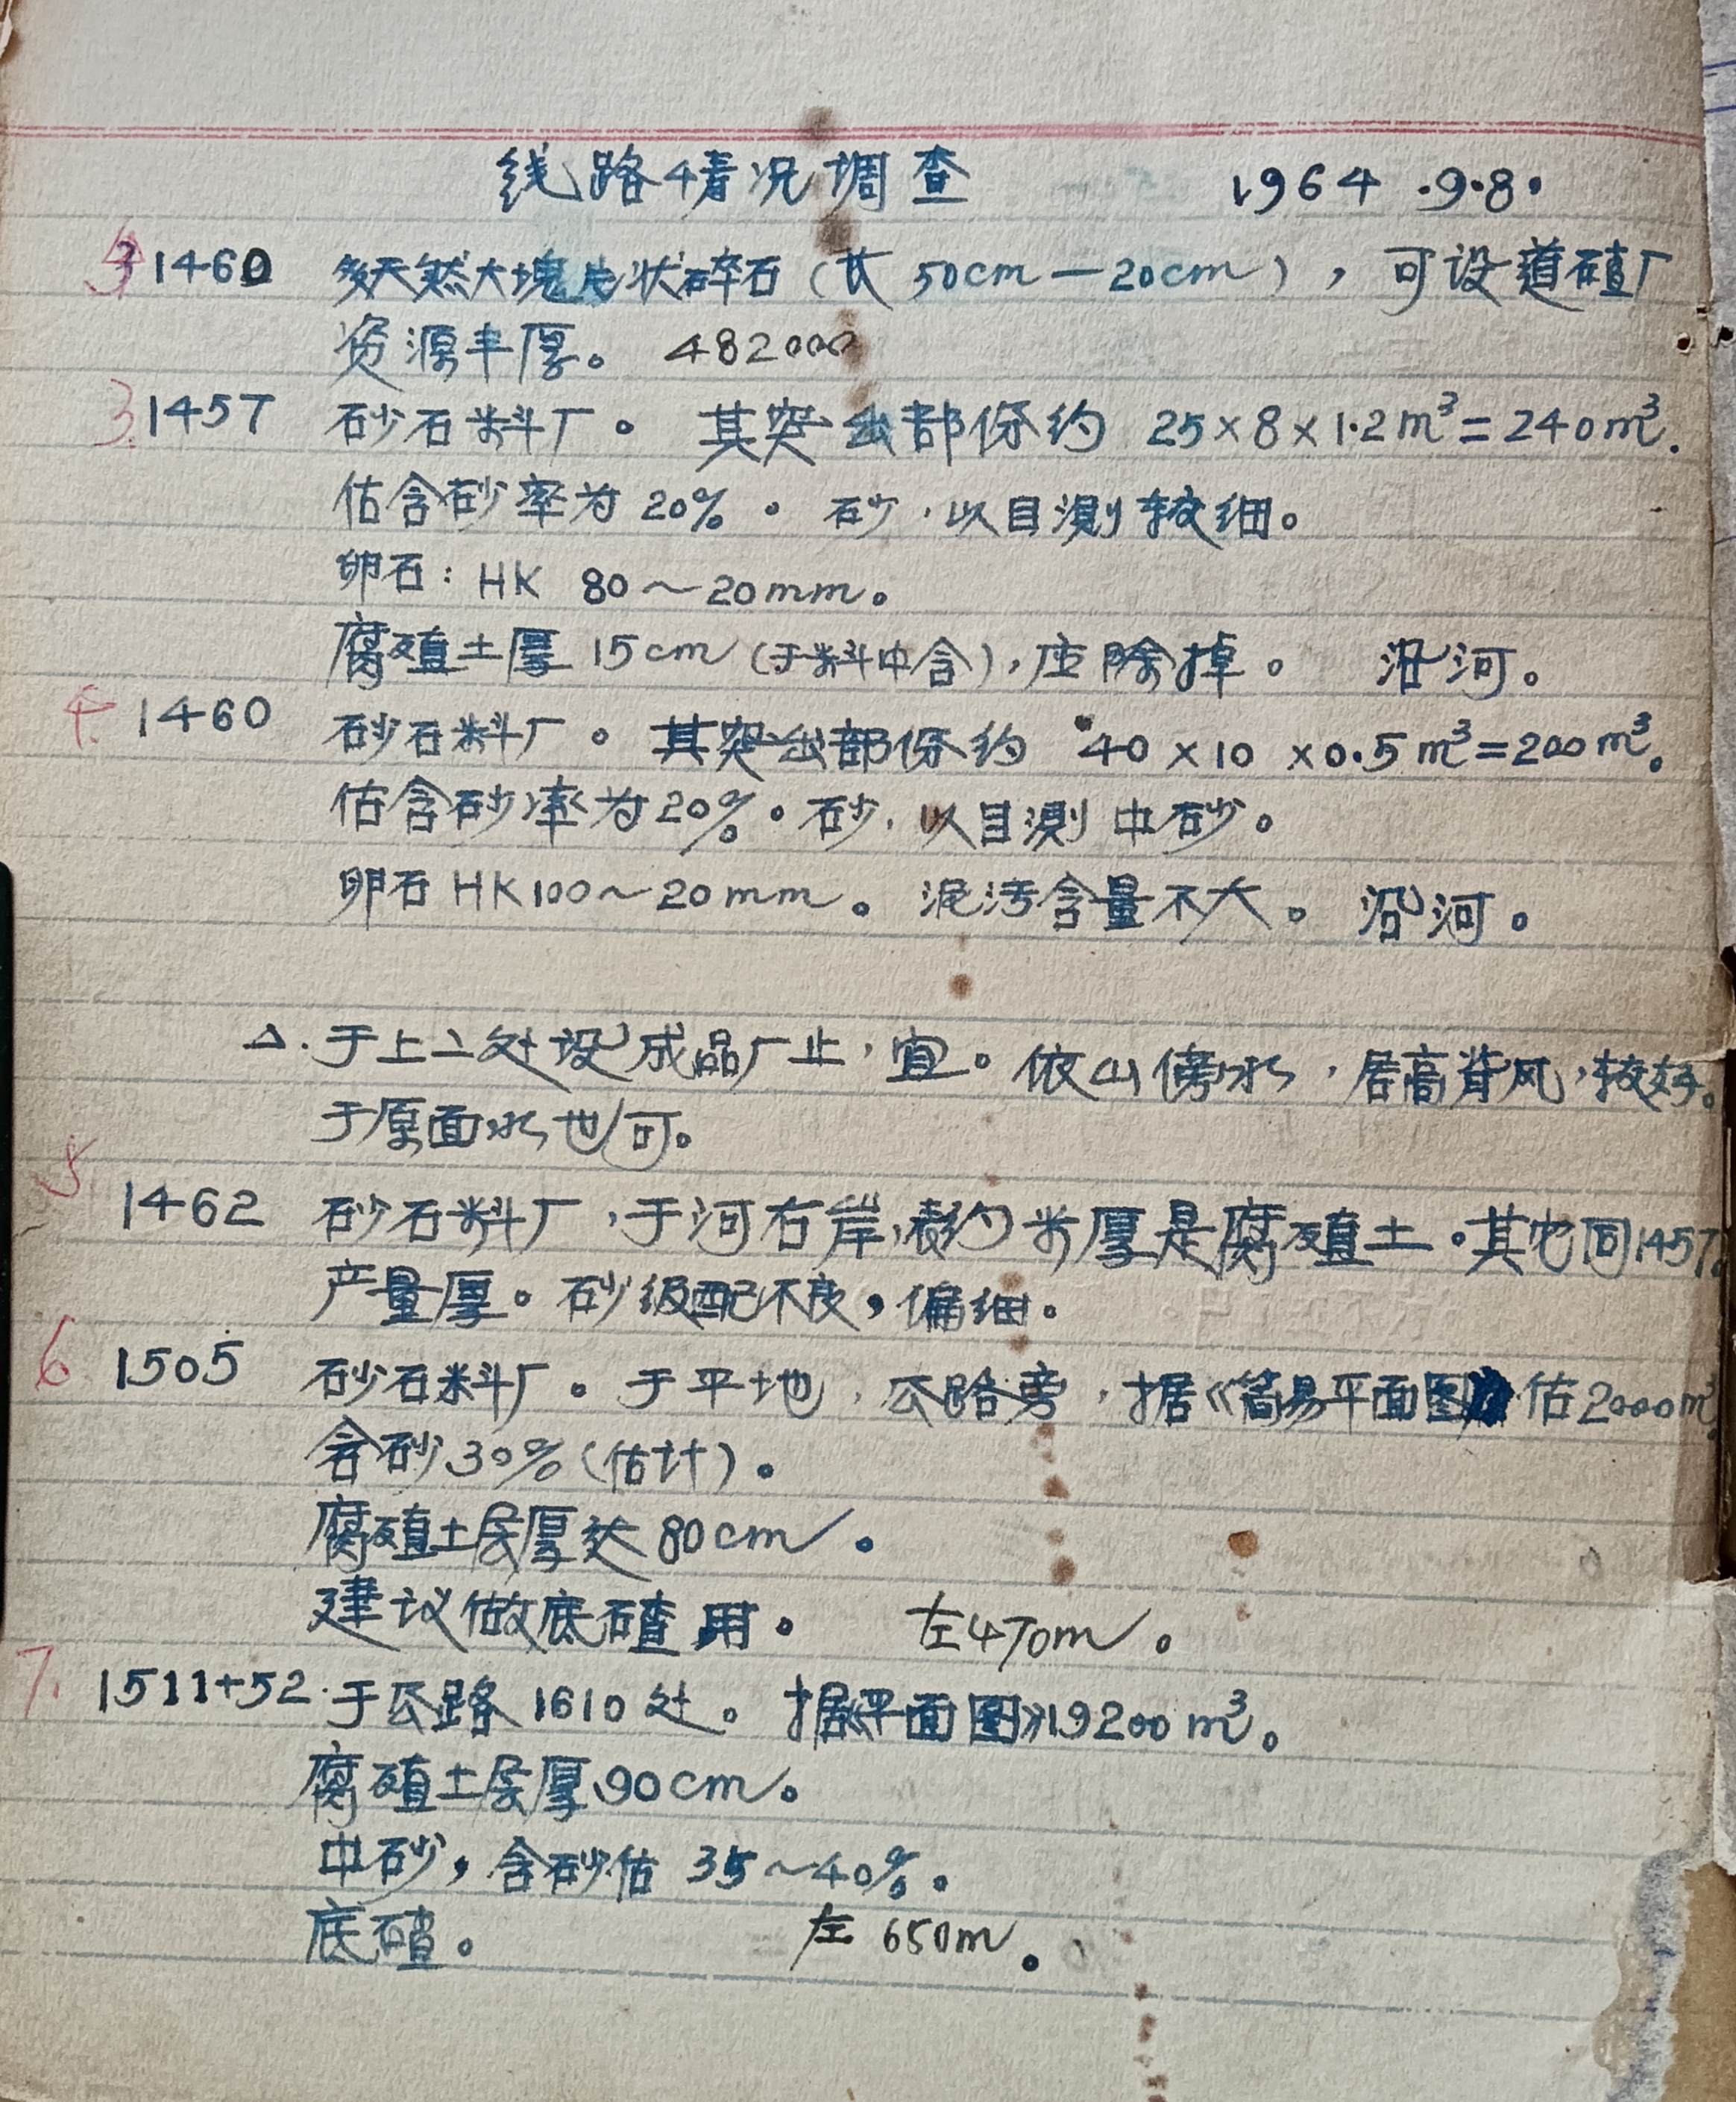 线路情况调查 1964.9.8.
1460 多天然大塊片状碎石(长50cm—20cm),可设道碴厂
资源丰厚。 482000
3. 1457 砂石料厂。其突出部份约 25×8×1.2m³=240m³.
估含砂率为20%。砂,以目測較细。
卵石: HK 80~20mm。
腐殖土厚15cm(于料中含),应除掉。 沿河。
4. 1460 砂石料厂。其突出部份约 40×10×0.5m³=200m³。
估含砂率为20%。砂,以目測中砂。
卵石HK100~20mm。泥污含量不大。沿河。
△.于上二处设成品厂止,宜。依山傍水,居高背风,较好。
于原面水也可。
5
1462 砂石料厂,于河右岸,表约米厚是腐殖土。其它同1457.
产量厚。砂级配不良,偏细。
6. 1505 砂石料厂。于平地,公路旁,据《简易平面图》估2000m³.
含砂30%(估计)。
腐殖土层厚达80cm。
建议做底碴用。 左470m。
7. 1511+52.于公路1610处。据《平面图》19200m³。
腐殖土层厚90cm。
中砂,含砂估 35~40%。
底碴。 左 650m。